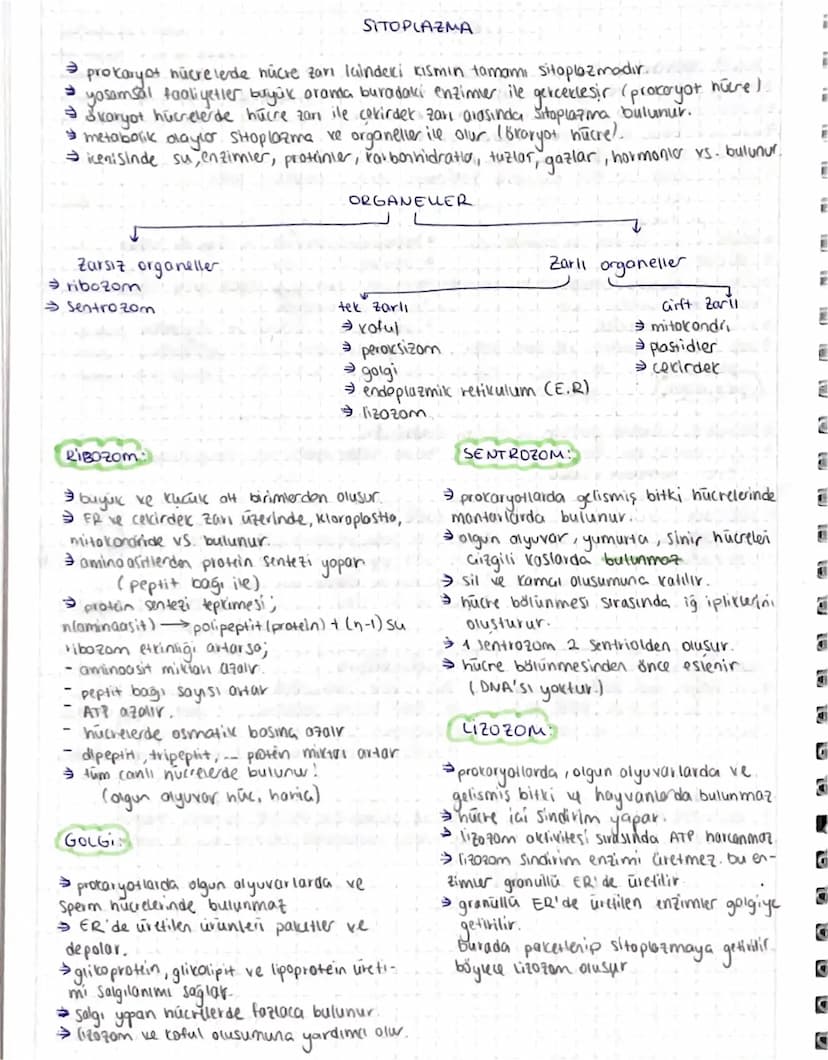 SITOPLAZMA
→ prokaryot hücrelerde hücre zarı icindeki kısmın tamamı sitoplazmadır.
→ yasamsal faaliyetler büyük oranda buradaki enzimler ile gerceklesir (prokaryot hücre)
→ ökaryot hücrelerde hücre zarı ile çekirdek zarı arasında sitoplazma bulunur.
→ metabolik olaylar sitoplazma ve organeller ile olur (ökaryot hücre).
→ icerisinde su, enzimler, proteinler, karbonhidratlar, tuzlar, gazlar, hormonlar vs. bulunur.
ORGANELLER
Zarsız organeller
→ ribozom
→ Sentrozom
Zarlı organeller
tek zarlı
→ koful
→ peroksizom
→ golgi
→ endoplazmik retikulum (E.R)
→ lizozom
Cift Zarlı
→ mitokondri
→ plastidler
→ cekirdek
RİBOZOM:
→ büyük ve küçük alt birimlerden oluşur.
→ ER ve cekirdek zarı üzerinde, kloroplastta,
mitokondride vs. bulunur.
→ aminoasitlerden protein sentezi yapar
(peptit bağı ile)
→ protein sentezi tepkimesi;
n(aminoasit) → polipeptit (protein) + (n-1) su
ribozom etkinliği artarsa;
- aminoasit miktarı azalır.
- peptit bağı sayısı artar
- ATP azalır.
- hücrelerde osmatik basınç azalır
- dipeptit, tripeptit,... protein miktarı artar
→ tüm canlı hücrelerde bulunur!
(olgun alyuvar hüc, haric)
GOLGİ:
→ prokaryotlarda olgun alyuvarlarda ve
sperm hücrelerinde bulunmaz
→ ER'de üretilen ürünleri paketler ve
depolar.
→ glikoprotein, glikolipit ve lipoprotein üreti-
mi salgılanımı sağlar.
→ salgı yapan hücrelerde fazlaca bulunur.
→ lizozom ve koful olusumuna yardımcı olur.
SENTROZOM:
→ prokaryotlarda gelismiş bitki hücrelerinde
mantarlarda bulunur.
→ olgun alyuvar, yumurta, sinir hücreleri
cizgili kaslarda bulunmaz
→ sil ve kamcı olusumuna katılır.
→ hücre bölünmesi sırasında iğ ipliklerini
oluşturur.
→ 1 sentrozom 2 sentriolden oluşur.
→ hücre bölünmesinden önce eslenir
(DNA'sı yoktur.)
LİZOZOM:
→ prokaryotlarda, olgun alyuvarlarda ve
gelismiş bitki ve hayvanlarda bulunmaz
→ hücre ici sindirim yapar.
→ lizozom aktivitesi sırasında ATP harcanmaz
→ lizozom sindirim enzimi üretmez. bu en-
zimler granüllü ER'de üretilir.
→ granüllü ER'de üretilen enzimler golgiye
getirilir.
burada paketlenip sitoplazmaya getirilir.
böylece lizozom olusur